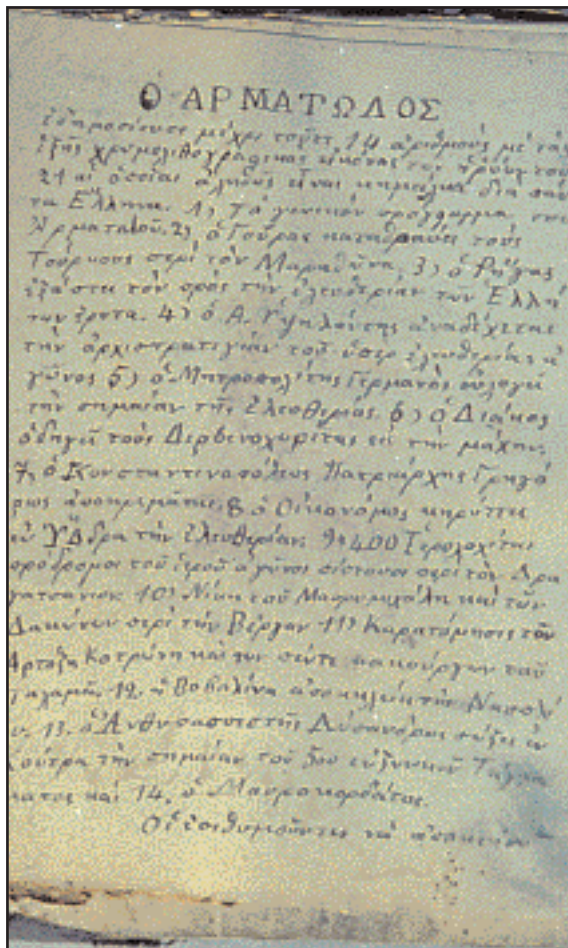 Ὁ ΑΡΜΑΤΩΛΟΣ
ἐδημοσίευσε μέχρι τοῦδε 14 ἀριθμοὺς μὲ τὰς
ἑξῆς χρωμολιθογραφικὰς εἰκόνας τῶν ἡρώων τοῦ
21 αἱ ὁποῖαι ἀληθῶς εἶναι κειμήλια διὰ πάν
τα Ἕλληνα. 1) Τὸ γενικὸν πρόγραμμα τοῦ
Ἁρματωλοῦ. 2) ὁ Γοῦρας καταδιώκει τοὺς
Τούρκους περὶ τὸν Μαραθῶνα, 3) ὁ Ρήγας
ἐξάπτει τὸν πρὸς τὴν ἐλευθερίαν τῶν Ἑλλή
νων ἔρωτα. 4) ὁ Α. Ὑψηλάντης ἀναδέχεται
τὴν ἀρχιστρατηγίαν τοῦ ὑπὲρ ἐλευθερίας ἀ
γῶνος 5) ὁ Μητροπολίτης Γερμανὸς εὐλογεῖ
τὴν σημαίαν τῆς Ἐλευθερίας. 6) ὁ Διάκος
ὁδηγεῖ τοὺς Δερβενοχωρίτας εἰς τὴν μάχην,
7, ὁ Κωνσταντινοπόλεως Πατριάρχης Γρηγό
ριος 8 ὁ Οἰκονόμος κηρύττει
ἐν Ὕδρᾳ τὴν Ἐλευθερίαν. 9) 400 Ἱερολοχίται
πρόδρομοι τοῦ ἱεροῦ ἀγῶνος πίπτουσι περὶ τὸν Δρα
γατσάνιον 10) Νίκη τοῦ Μαυρομιχάλη καὶ τῶν
Λακώνων περὶ τὴν Βέργαν 11) Καρατόμησις τοῦ
Κοτρώνη καὶ τῶν πέντε κακούργων τοῦ
12. ἡ Βοβολίνα ἀποκλείει τὴν Ναυπλί
13. ὁ Ἀνθυπασπιστὴς σώζει ἐν
τὴν σημαίαν τοῦ 5ου εὐζωνικοῦ Τάγμα
ματος καὶ 14, ὁ Μαυροκορδάτος.
Οἱ ἐπιθυμοῦντες νὰ